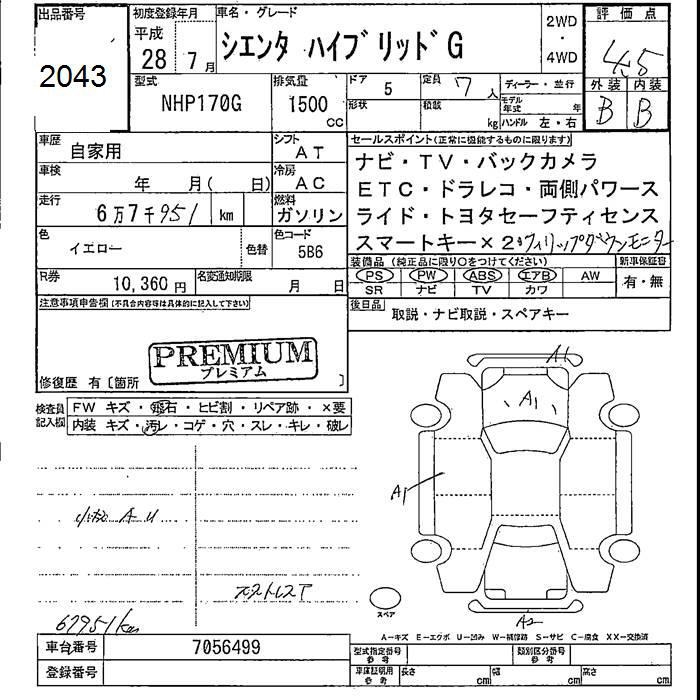 出品番号 2043
初度登録年月 平成 28 7月
車名・グレード シエンタ ハイブリッドG
2WD・4WD
評価点 4.5
型式 NHP170G
排気量 1500 CC
ドア 5
形状
定員 7人
積載 kg
ディーラー・並行
モデル年式 年
ハンドル 左・右
外装 B 内装 B
車歴 自家用
シフト AT
車検 年 月( 日)
冷房 AC
走行 6万7千951 km
燃料 ガソリン
色 イエロー 色替
色コード 5B6
R券 10,360円
名変通知期限 月 日
セールスポイント(正常に機能するものに限ります)
ナビ・TV・バックカメラ
ETC・ドラレコ・両側パワース
ライド・トヨタセーフティセンス
スマートキー×2・フィリップダウンモニター
装備品(純正品に限り○をつけてください)
PS PW ABS エアB AW
SR ナビ TV カワ
新車保証書 有・無
後日品 取説・ナビ取説・スペアキー
注意事項申告欄(不具合内容等は具体的に記入して下さい)
PREMIUM
プレミアム
修復歴 有〔箇所 〕
検査員記入欄
FW キズ・飛石・ヒビ割・リペア跡・×要
内装 キズ・汚レ・コゲ・穴・スレ・キレ・破レ
A1
A1
A1
A2
小キズ A U
67951km
スペア
A―キズ E―エクボ U―凹み W―補修跡 S―サビ C―腐食 XX―交換済
車台番号 7056499
登録番号
型式指定番号 参考
類別区分番号 参考
車庫証明用 参考 長さ cm 幅 cm 高さ cm